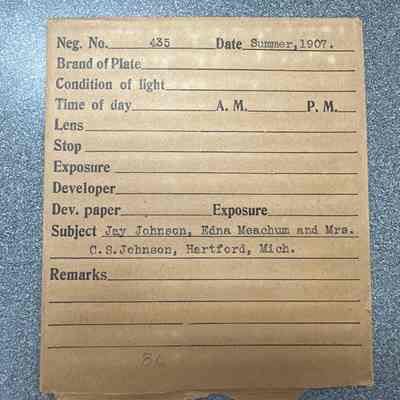 Neg. No. 435 Date Summer, 1907.
Brand of Plate
Condition of light
Time of day A. M. P. M.
Lens
Stop
Exposure
Developer
Dev. paper Exposure
Subject Jay Johnson, Edna Meachum and Mrs.
C.S.Johnson, Hartford, Mich.
Remarks